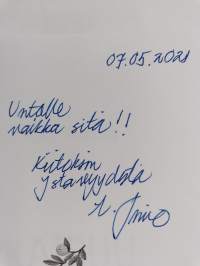 07.05.2021
Untolle
vaikka sitä!!
Kiitoksin
ystävyydestä